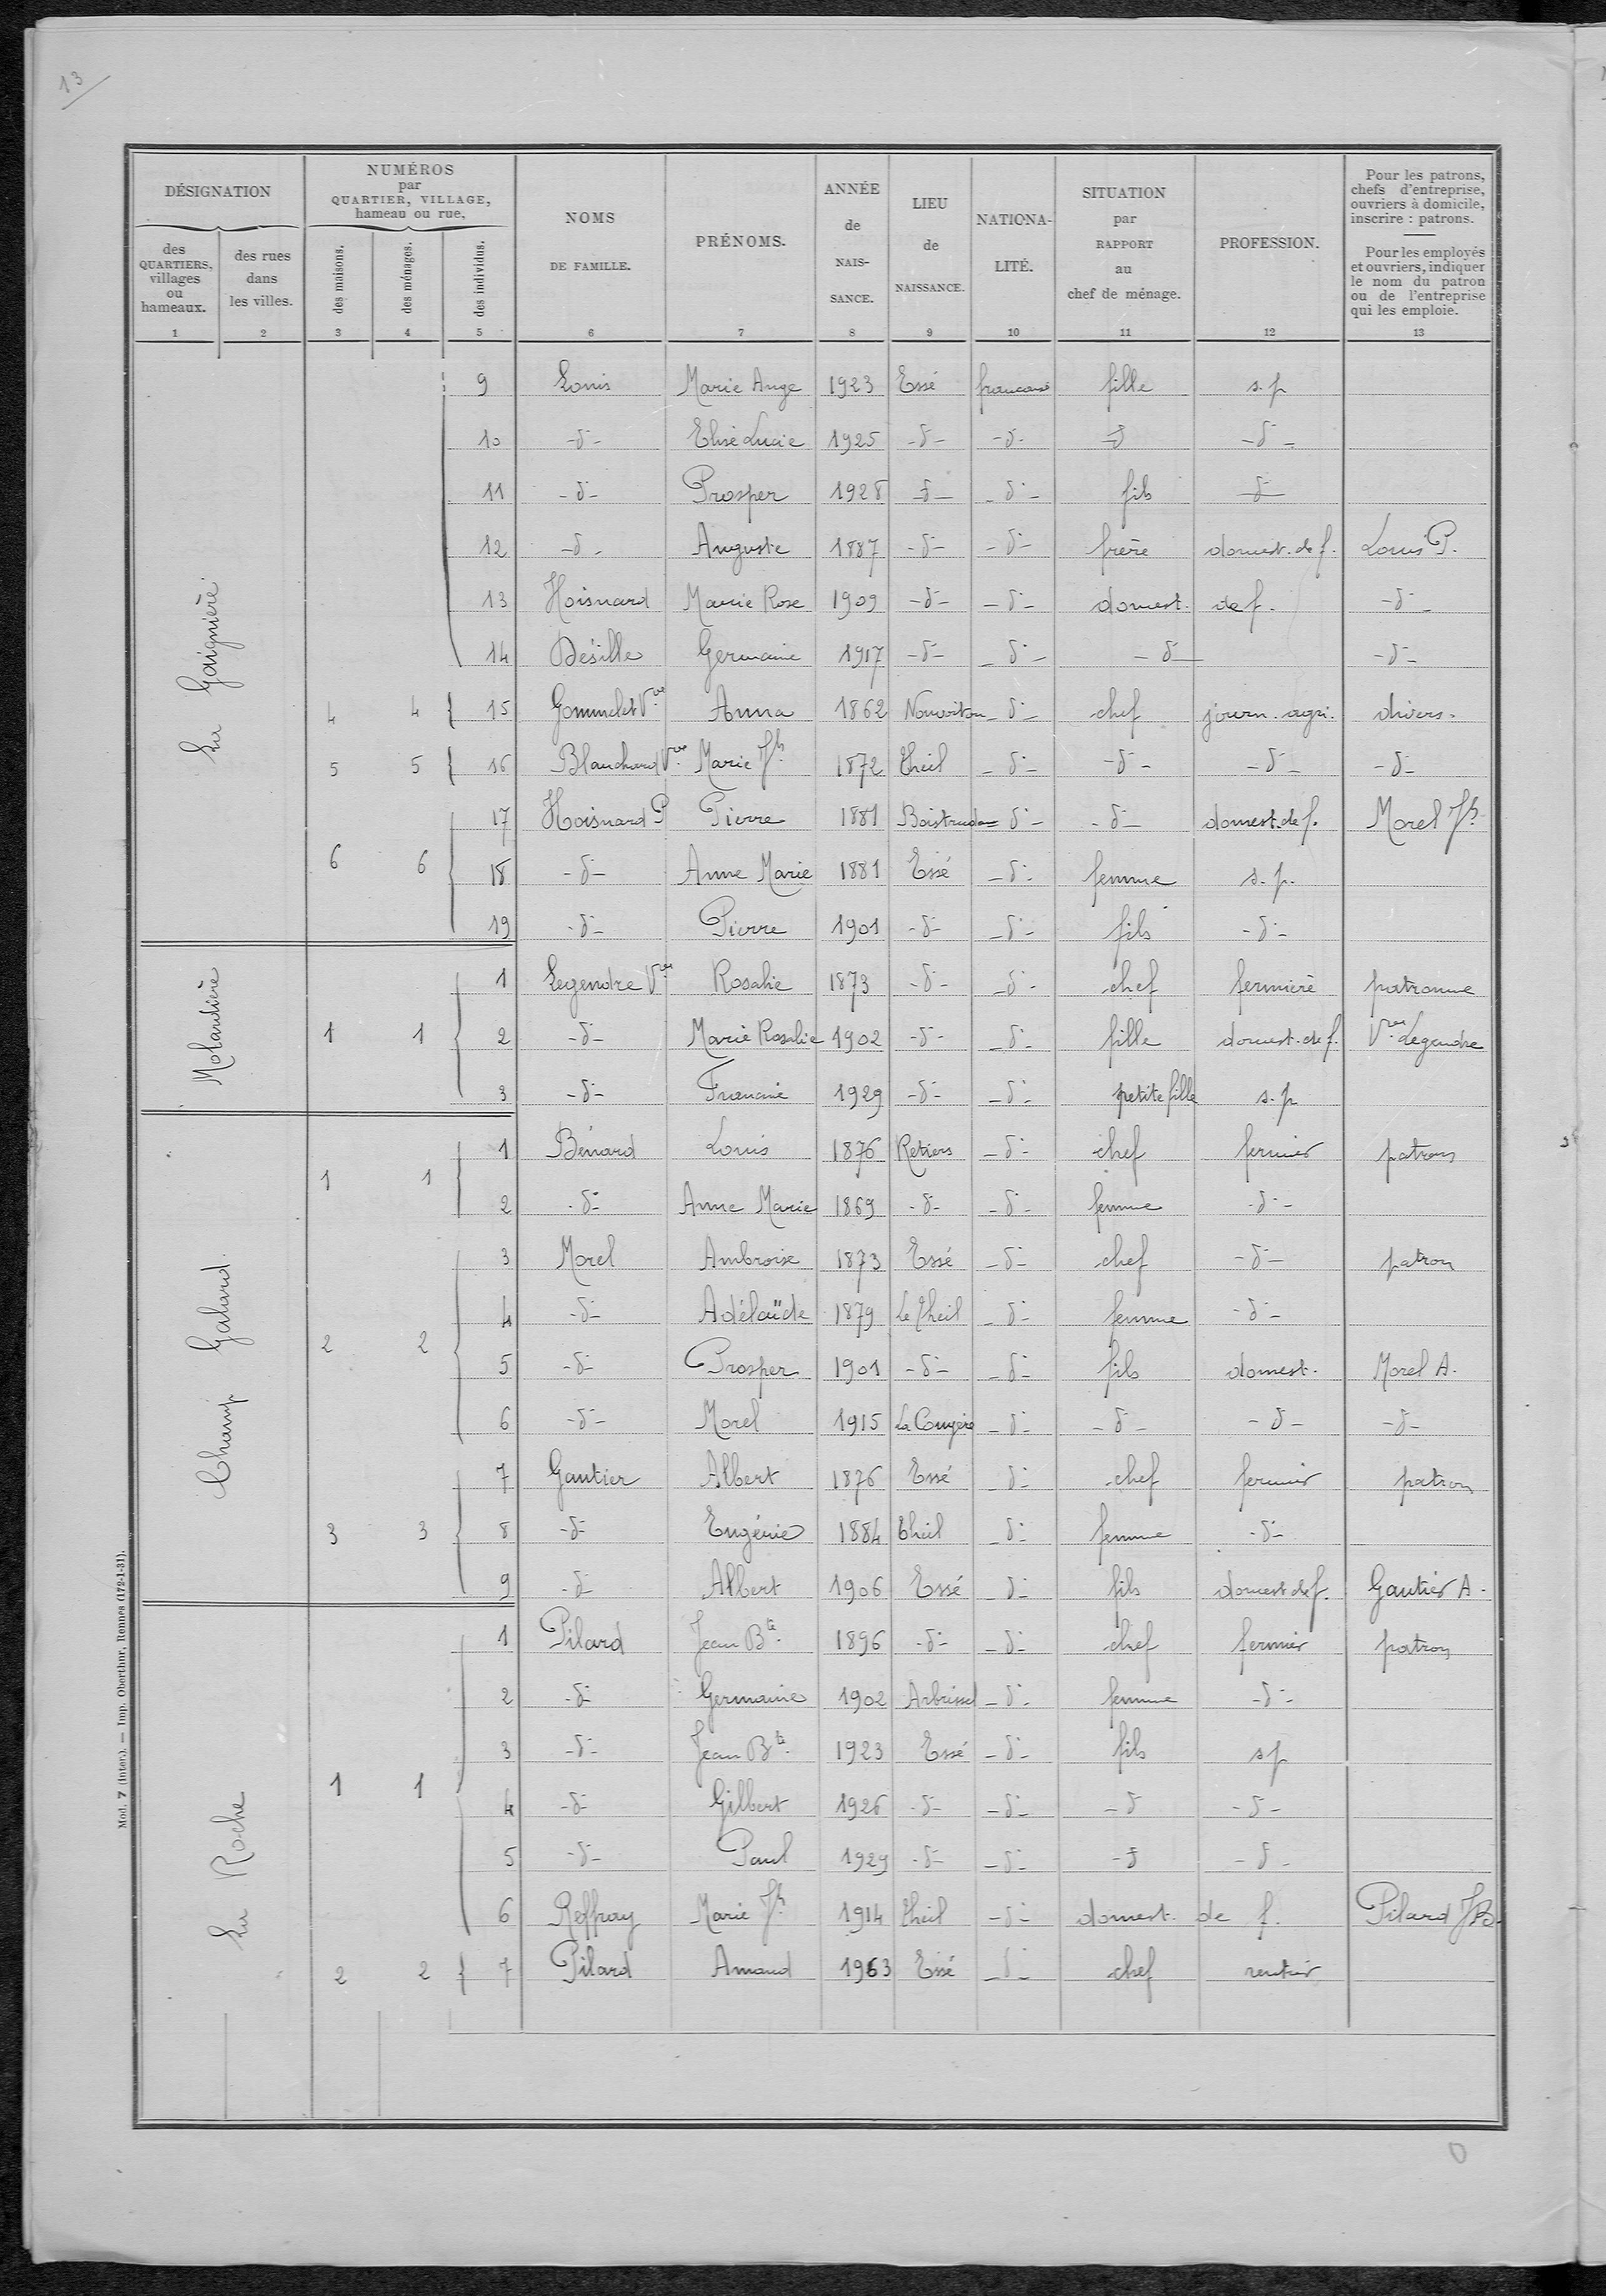 13
DÉSIGNATION
des QUARTIERS, villages ou hameaux.
des rues dans les villes.
NUMÉROS par QUARTIER, VILLAGE, hameau ou rue,
des maisons.
des ménages.
des individus.
NOMS DE FAMILLE.
PRÉNOMS.
ANNÉE de NAIS-SANCE.
LIEU de NAISSANCE.
NATIONA-LITÉ.
SITUATION par RAPPORT au chef de ménage.
PROFESSION.
Pour les patrons, chefs d'entreprise, ouvriers à domicile, inscrire : patrons.
Pour les employés et ouvriers, indiquer le nom du patron ou de l'entreprise qui les emploie.
1 2 3 4 5 6 7 8 9 10 11 12 13
La Gaignière
9 Louis Marie Ange 1923 Essé française fille s.p
10 -d- Elise Lucie 1925 -d- -d- -d -d-
11 -d- Prosper 1928 -d- -d- fils -d-
12 -d- Auguste 1887 -d- -d- frère domest. de f. Louis P.
13 Hoisnard Marie Rose 1909 -d- -d- domest. de f. -d-
14 Désille Germaine 1917 -d- -d- -d- -d-
4 4 15 Gommelet Vve Anna 1862 Nouvoitou -d- chef journ. agri. divers.
5 5 16 Blanchard Vve Marie Jh 1872 Theil -d- -d- -d- -d-
17 Hoisnard P Pierre 1881 Boistrudan -d- -d- domest. de f. Morel Jh
6 6 18 -d- Anne Marie 1881 Essé -d- femme s.p.
19 -d- Pierre 1901 -d- -d- fils -d-
Molardière
1 Legendre Vve Rosalie 1873 -d- -d- chef fermière patronne
1 1 2 -d- Marie Rosalie 1902 -d- -d- fille domest. de f. Vve Legendre
3 -d- Francine 1929 -d- -d- petite fille s.p
Champ Galard.
1 1 1 Bénard Louis 1876 Retiers -d- chef fermier patron
2 -d- Anne Marie 1869 -d- -d- femme -d-
3 Morel Ambroise 1873 Essé -d- chef -d- patron
4 -d- Adélaïde 1879 Le Theil -d- femme -d-
2 2 5 -d- Prosper 1901 -d- -d- fils domest. Morel A.
6 -d- Morel 1915 La Couyère -d- -d- -d- -d-
7 Gautier Albert 1876 Essé -d- chef fermier patron
3 3 8 -d- Eugénie 1884 Theil -d- femme -d-
9 -d- Albert 1906 Essé -d- fils domest de f. Gautier A.
La Roche
1 Pilard Jean Bte 1896 -d- -d- chef fermier patron
2 -d- Germaine 1902 Arbrissel -d- femme -d-
3 -d- Jean Bte 1923 Essé -d- fils s.p
1 1 4 -d- Gilbert 1926 -d- -d- -d -d-
5 -d- Paul 1929 -d- -d- -d -d-
6 Reffray Marie Jh 1914 Theil -d- domest. de f. Pilard JB.
2 2 7 Pilard Amand 1963 Essé -d- chef rentier
Mod. 7 (Inter.). — Imp. Oberthur, Rennes (172-1-31).